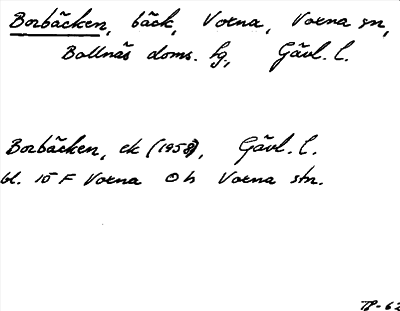 Borbäcken, bäck, Vorna, Vorna sn,
Bollnäs doms. fg, Gävl. l.
Borbäcken, ek (1958), Gävl. l.
bl. 15 F Vorna O h Vorna stn.
TP-62